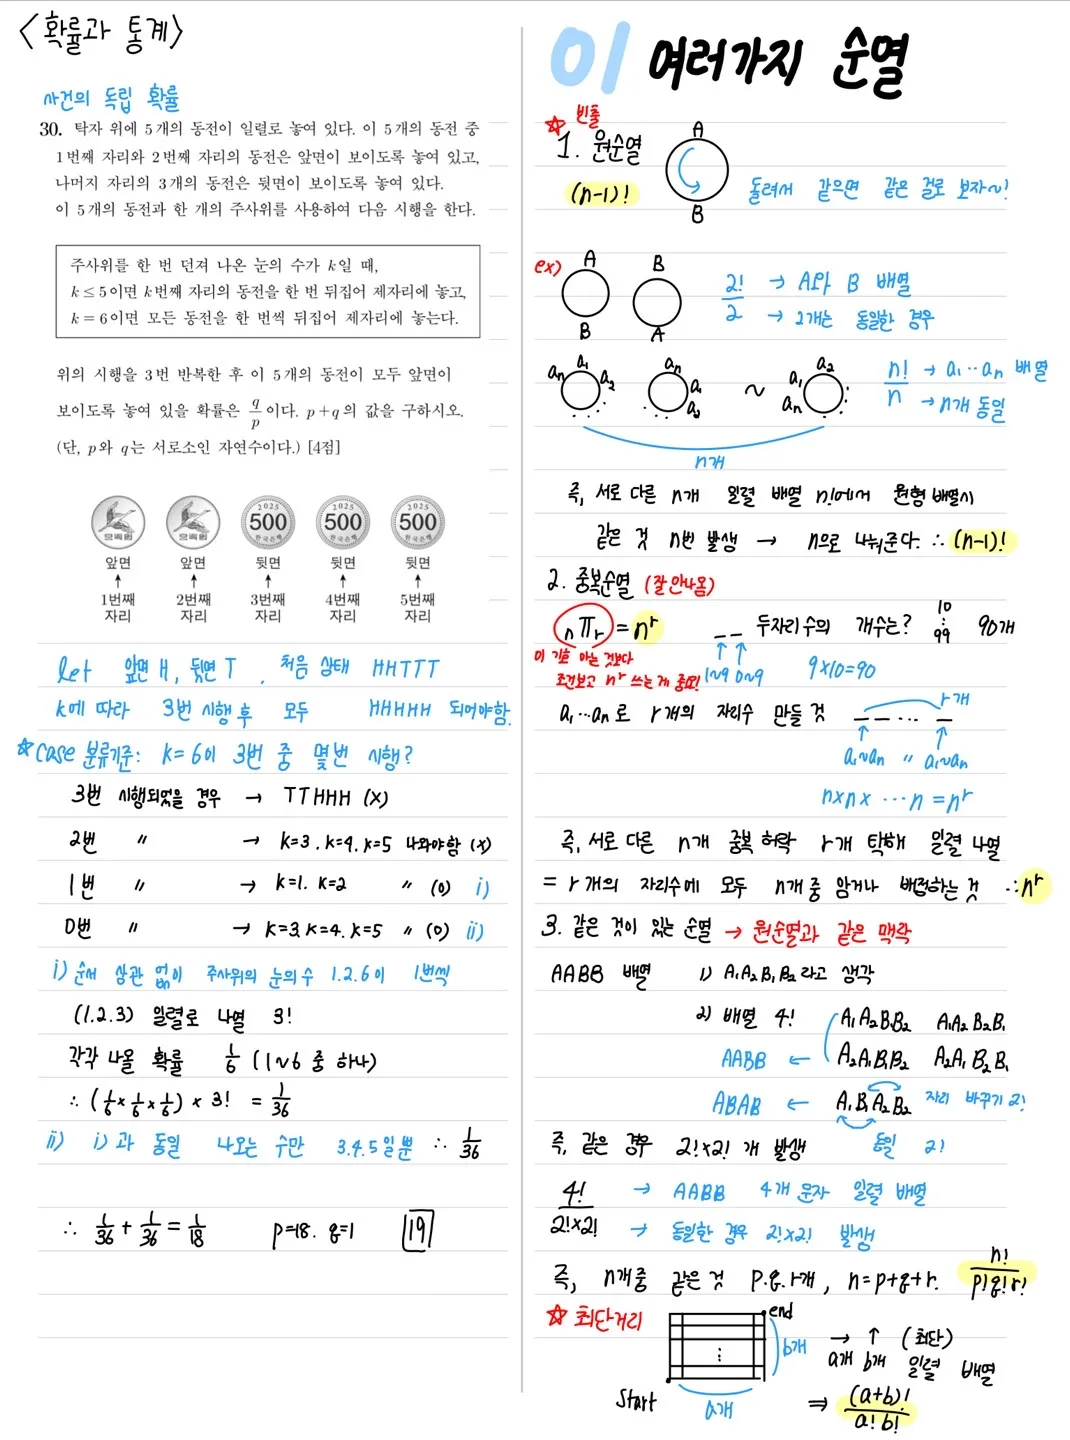 <확률과 통계>
사건의 독립 확률
30. 탁자 위에 5개의 동전이 일렬로 놓여 있다. 이 5개의 동전 중
1번째 자리와 2번째 자리의 동전은 앞면이 보이도록 놓여 있고,
나머지 자리의 3개의 동전은 뒷면이 보이도록 놓여 있다.
이 5개의 동전과 한 개의 주사위를 사용하여 다음 시행을 한다.
주사위를 한 번 던져 나온 눈의 수가 k일 때,
k≤5이면 k번째 자리의 동전을 한 번 뒤집어 제자리에 놓고,
k=6이면 모든 동전을 한 번씩 뒤집어 제자리에 놓는다.
위의 시행을 3번 반복한 후 이 5개의 동전이 모두 앞면이
보이도록 놓여 있을 확률은 q/p이다. p+q의 값을 구하시오.
(단, p와 q는 서로소인 자연수이다.) [4점]
2025 2025 2025
500 500 500
한국은행 한국은행 한국은행
앞면 앞면 뒷면 뒷면 뒷면
↑ ↑ ↑ ↑ ↑
1번째 2번째 3번째 4번째 5번째
자리 자리 자리 자리 자리
let 앞면 H, 뒷면 T. 처음 상태 HHTTT
k에 따라 3번 시행 후 모두 HHHHH 되어야함.
☆ Case 분류기준: k=6이 3번 중 몇번 시행?
3번 시행되었을 경우 → TTHHH (X)
2번 〃 → k=3. k=4. k=5 나와야함 (X)
1번 〃 → k=1. k=2 〃 (O) i)
0번 〃 → k=3. k=4. k=5 〃 (O) ii)
i) 순서 상관 없이 주사위의 눈의 수 1.2.6이 1번씩
(1.2.3) 일렬로 나열 3!
각각 나올 확률 1/6 (1~6 중 하나)
∴ (1/6 × 1/6 × 1/6) × 3! = 1/36
ii) i)과 동일 나오는 수만 3.4.5일뿐 ∴ 1/36
∴ 1/36 + 1/36 = 1/18 p=18. q=1 19
01 여러가지 순열
☆ 빈출
1. 원순열
(n-1)!
A
B
돌려서 같으면 같은 걸로 보자~!
ex)
A B
B A
2!/2 → A와 B 배열
→ 2개는 동일한 경우
an a1 a2 … an a1 a2 … ~ a1 a2 an …
n!/n → a1…an 배열
→ n개 동일
n개
즉, 서로 다른 n개 일렬 배열 n!에서 원형 배열시
같은 것 n번 발생 → n으로 나눠준다. ∴ (n-1)!
2. 중복순열 (잘 안나옴)
nΠr = n^r
이 기호 아는 것보다
조건보고 n^r 쓰는게 중요!
_ _ 두자리 수의 개수는? 10 : 99 90개
↑ ↑
1~9 0~9 9×10=90
a1…an로 r개의 자리수 만들 것 _ _ … _ r개
a1~an 〃 a1~an
n×n× … n = n^r
즉, 서로 다른 n개 중복 허락 r개 택해 일렬 나열
= r개의 자리수에 모두 n개 중 암거나 배정하는 것 ∴ n^r
3. 같은 것이 있는 순열 → 원순열과 같은 맥락
AABB 배열 1) A1A2B1B2라고 생각
2) 배열 4! A1A2B1B2 A1A2B2B1
AABB ← A2A1B1B2 A2A1B2B1
ABAB ← A1B1A2B2 자리 바꾸기 2!
즉, 같은 경우 2!×2! 개 발생 동일 2!
4!/2!×2! → AABB 4개 문자 일렬 배열
→ 동일한 경우 2!×2! 발생
즉, n개 중 같은 것 p.q.r개, n=p+q+r. n!/p!q!r!
☆ 최단거리
end
b개
→ ↑ (최단)
a개 b개 일렬 배열
Start
a개
⇒ (a+b)!/a!b!